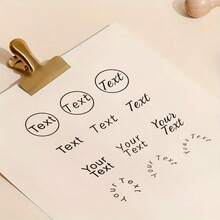 Text
Text
Text
Text
Text
Text
Your
Text
Your
Text
Your Text
Your Text
Your Text